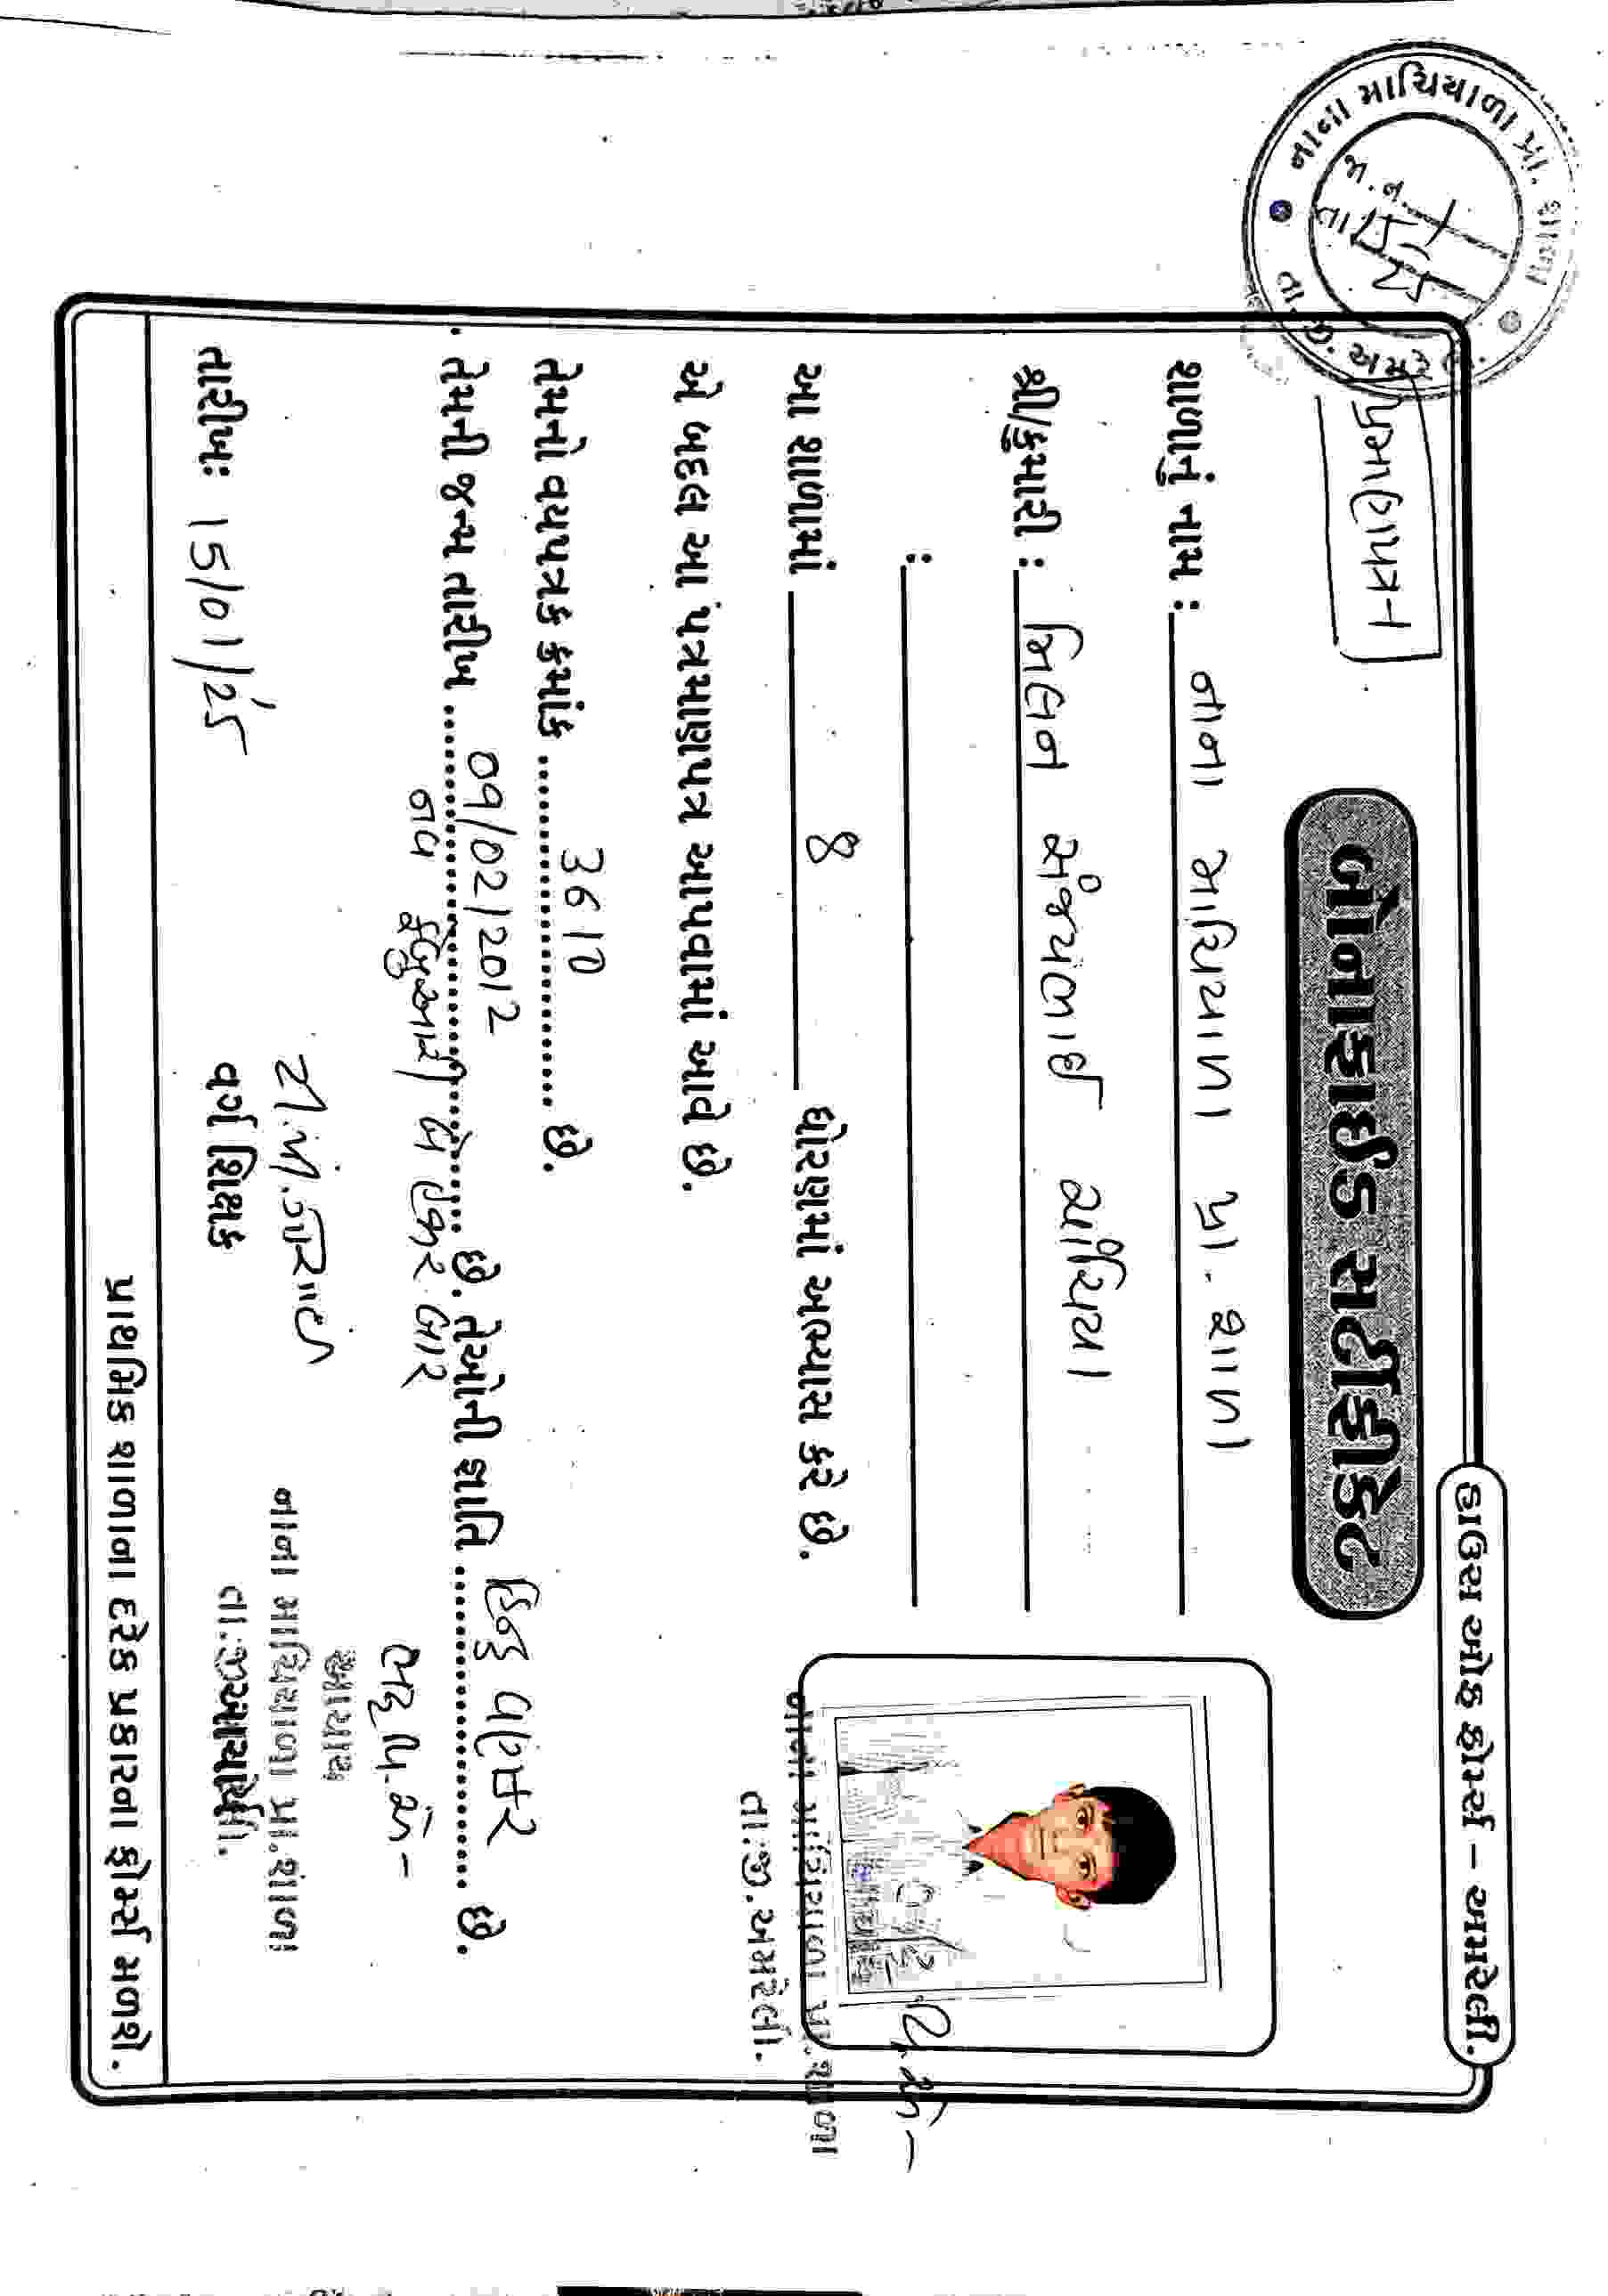 હાઉસ ઓફ ફોર્મ્સ – અમરેલી.
નાના માચિયાળા પ્રા. શાળા
તા.જી. અમરેલી
મ.ન.
તા. 15
પ્રમાણપત્ર
બોનાફાઈડ સર્ટીફીકેટ
શાળાનું નામ : નાના માચિયાળા પ્રા. શાળા
શ્રી/કુમારી : મિલન સંજયભાઈ સોરિયા
:
આ શાળામાં 8 ધોરણમાં અભ્યાસ કરે છે.
એ બદલ આ પત્રમાણપત્ર આપવામાં આવે છે.
તેમનો વયપત્રક ક્રમાંક 3610 છે.
તેમની જન્મ તારીખ 09/02/2012 છે. તેઓની જ્ઞાતિ હિન્દુ વણકર છે.
નવ ફેબ્રુઆરી બે હજાર બાર
તારીખઃ 15/01/25
વર્ગ શિક્ષક
આચાર્ય
નાના માચિયાળા પ્રા. શાળા
તા.જી.અમરેલી.
આચાર્ય
નાના માચિયાળા પ્રા. શાળા
તા.જી.અમરેલી.
પ્રાથમિક શાળાના દરેક પ્રકારના ફોર્મ્સ મળશે.